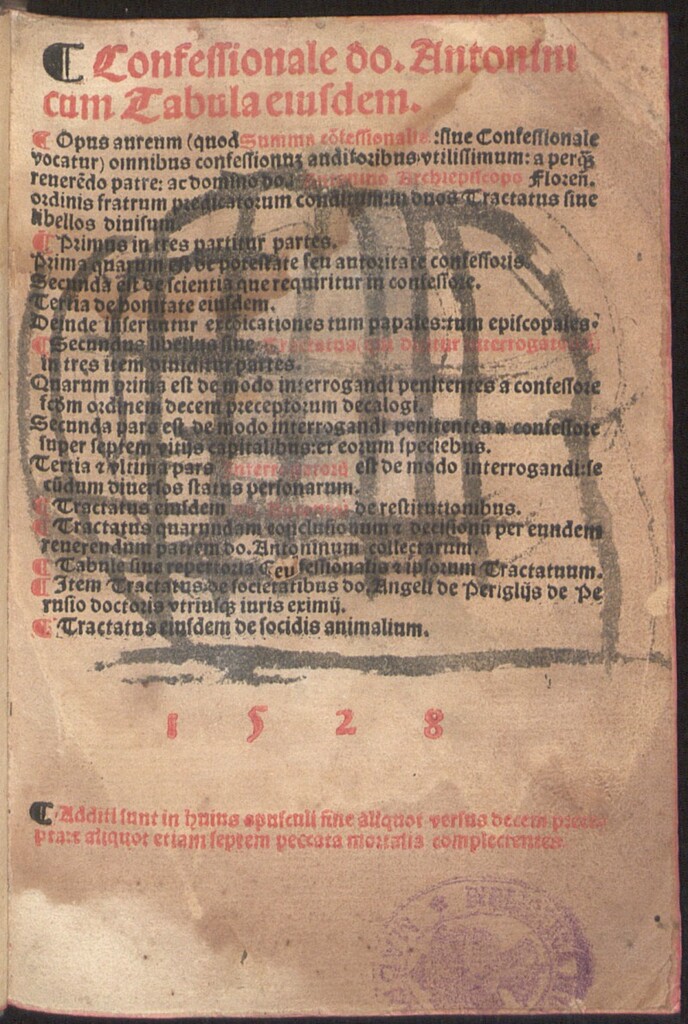 ¶ Confessionale do. Antonini
cum Tabula eiusdem.
¶ Opus aureum (quod Summa cōfessionalis :siue Confessionale
vocatur) omnibus confessionuz auditoribus vtilissimum: a perqȝ
reuerēdo patre: ac domino do. Antonino Archiepiscopo Floren̄.
ordinis fratrum predicatorum conditum: in duos Tractatus siue
libellos diuisum.
¶ Primus in tres partitur partes.
Prima quarum est de potestate seu autoritate confessoris.
Secunda est de scientia que requiritur in confessore.
Tertia de bonitate eiusdem.
Deinde inseruntur excōicationes tum papales: tum episcopales.
¶ Secundus libellus siue Tractatus interrogatoriū
in tres item diuiditur partes.
Quarum prima est de modo interrogandi penitentes a confessore
scḋm ordinem decem preceptorum decalogi.
Secunda pars est de modo interrogandi penitentes a confessore
super septem vitijs capitalibus: et eorum speciebus.
Tertia ⁊ vltima pars Interrogatorij est de modo interrogandi: se
cūdum diuersos status personarum.
¶ Tractatus eiusdem do. Antonini de restitutionibus.
¶ Tractatus quarundam conclusionum ⁊ decisionū per eundem
reuerendum patrem do. Antoninum collectarum.
¶ Tabule siue repertoria Confessionalis ⁊ ipsorum Tractatuum.
¶ Item Tractatus de societatibus do. Angeli de Periglijs de Pe
rusio doctoris vtriusqȝ iuris eximij.
¶ Tractatus eiusdem de socidis animalium.
1528
¶ Additi sunt in huius opusculi fine aliquot versus decem
aliquot etiam septem peccata mortalia complectentes